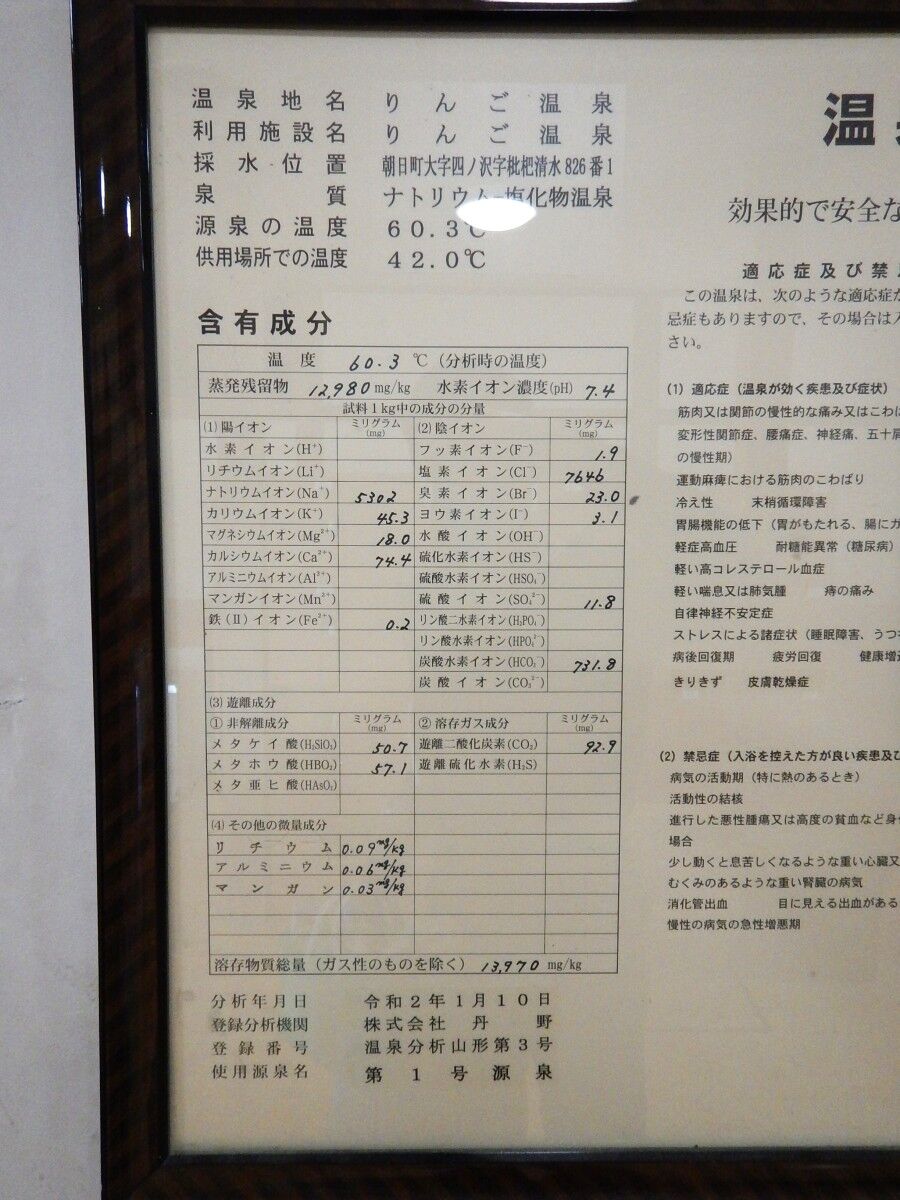 温泉地名 りんご温泉
利用施設名 りんご温泉
採水位置 朝日町大字四ノ沢字枇杷清水826番1
泉質 ナトリウム-塩化物温泉
源泉の温度 60.3℃
供用場所での温度 42.0℃
含有成分
温度 60.3 ℃ (分析時の温度)
蒸発残留物 12,980 mg/kg 水素イオン濃度(pH) 7.4
試料1kg中の成分の分量
(1)陽イオン ミリグラム(mg) (2)陰イオン ミリグラム(mg)
水素イオン(H⁺) フッ素イオン(F⁻) 1.9
リチウムイオン(Li⁺) 塩素イオン(Cl⁻) 7646
ナトリウムイオン(Na⁺) 5302 臭素イオン(Br⁻) 23.0
カリウムイオン(K⁺) 45.3 ヨウ素イオン(I⁻) 3.1
マグネシウムイオン(Mg²⁺) 18.0 水酸イオン(OH⁻)
カルシウムイオン(Ca²⁺) 74.4 硫化水素イオン(HS⁻)
アルミニウムイオン(Al³⁺) 硫酸水素イオン(HSO₄⁻)
マンガンイオン(Mn²⁺) 硫酸イオン(SO₄²⁻) 11.8
鉄(Ⅱ)イオン(Fe²⁺) 0.2 リン酸二水素イオン(H₂PO₄⁻)
リン酸水素イオン(HPO₄²⁻)
炭酸水素イオン(HCO₃⁻) 731.8
炭酸イオン(CO₃²⁻)
(3)遊離成分
① 非解離成分 ミリグラム(mg) ② 溶存ガス成分 ミリグラム(mg)
メタケイ酸(H₂SiO₃) 50.7 遊離二酸化炭素(CO₂) 92.9
メタホウ酸(HBO₂) 57.1 遊離硫化水素(H₂S)
メタ亜ヒ酸(HAsO₂)
(4)その他の微量成分
リチウム 0.09mg/kg
アルミニウム 0.06mg/kg
マンガン 0.03mg/kg
溶存物質総量(ガス性のものを除く) 13,970 mg/kg
分析年月日 令和2年1月10日
登録分析機関 株式会社 丹野
登録番号 温泉分析山形第3号
使用源泉名 第1号源泉
温
効果的で安全な
適応症及び禁
この温泉は、次のような適応症が
忌症もありますので、その場合は入
さい。
(1) 適応症(温泉が効く疾患及び症状)
筋肉又は関節の慢性的な痛み又はこわ
変形性関節症、腰痛症、神経痛、五十肩
の慢性期)
運動麻痺における筋肉のこわばり
冷え性 末梢循環障害
胃腸機能の低下(胃がもたれる、腸にガ
軽症高血圧 耐糖能異常(糖尿病)
軽い高コレステロール血症
軽い喘息又は肺気腫 痔の痛み
自律神経不安定症
ストレスによる諸症状(睡眠障害、うつ
病後回復期 疲労回復 健康増
きりきず 皮膚乾燥症
(2) 禁忌症(入浴を控えた方が良い疾患及び
病気の活動期(特に熱のあるとき)
活動性の結核
進行した悪性腫瘍又は高度の貧血など身
場合
少し動くと息苦しくなるような重い心臓又
むくみのあるような重い腎臓の病気
消化管出血 目に見える出血がある
慢性の病気の急性増悪期